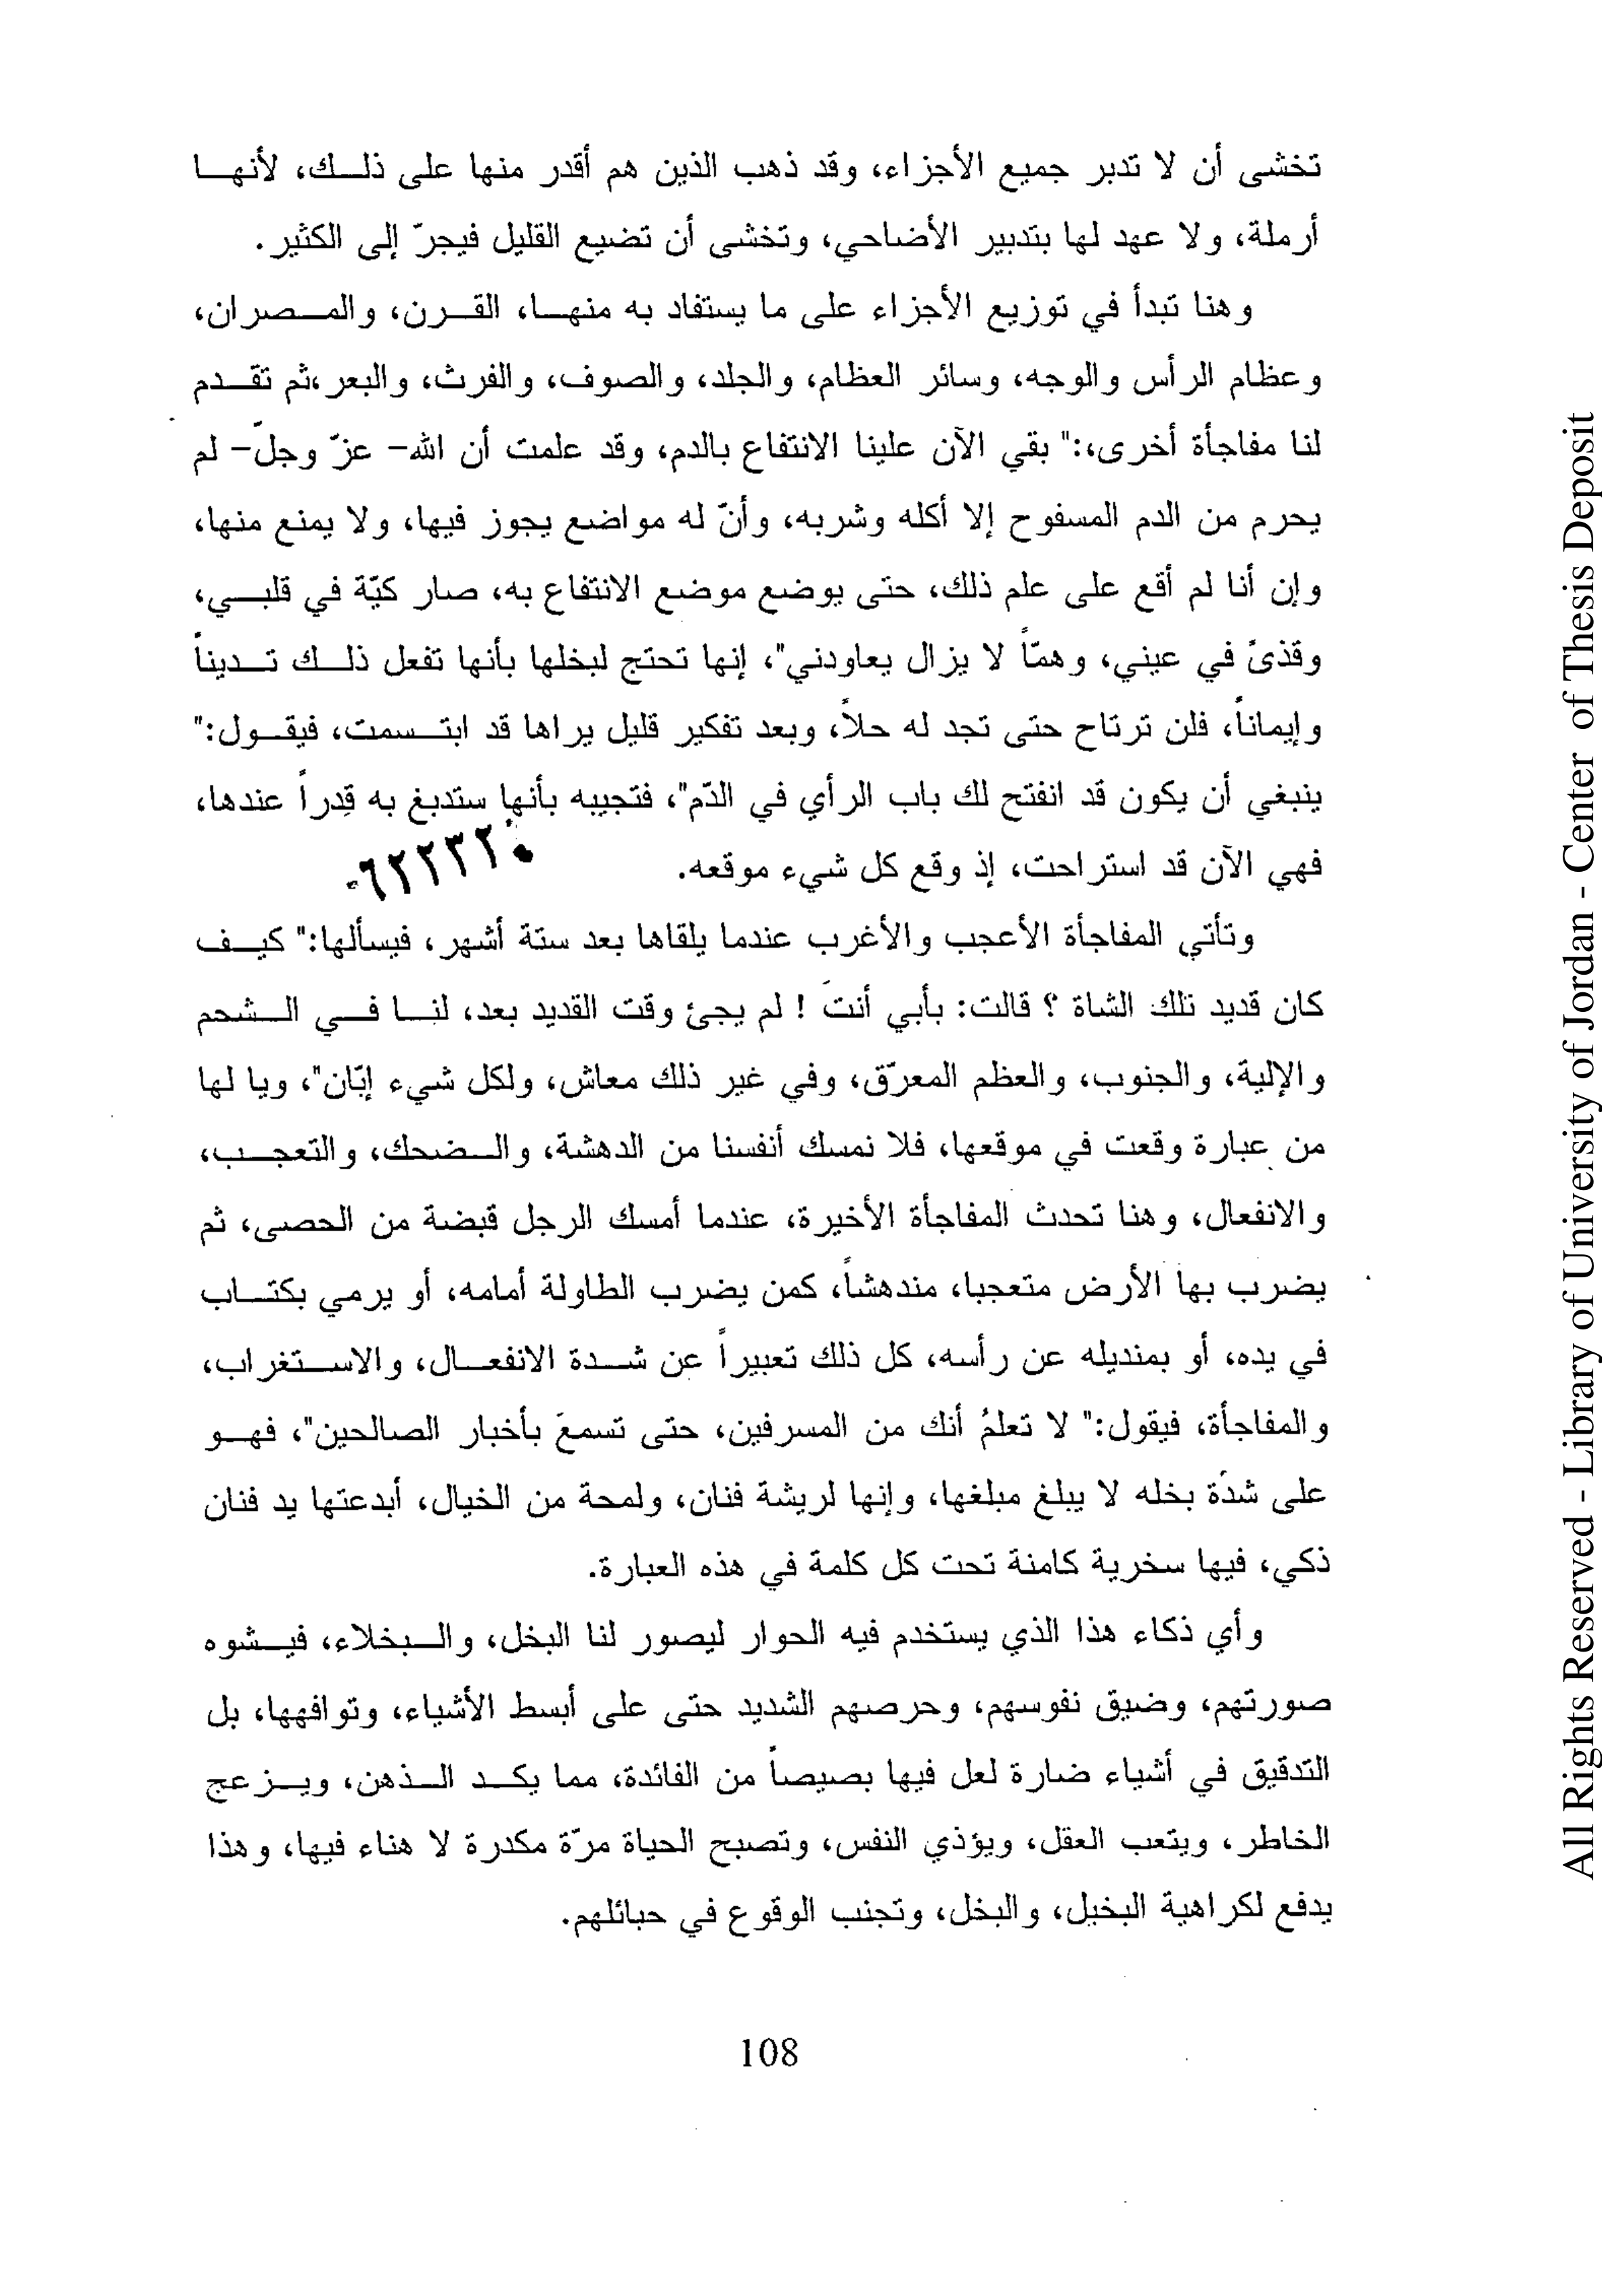 تخشى أن لا تدبر جميع الأجزاء، وقد ذهب الذين هم أقدر منها على ذلك، لأنها
أرملة، ولا عهد لها بتدبير الأضاحي، وتخشى أن تضيع القليل فيجرّ إلى الكثير.
وهنا تبدأ في توزيع الأجزاء على ما يستفاد به منها، القرن، والمصران،
وعظام الرأس والوجه، وسائر العظام، والجلد، والصوف، والفرث، والبعر،ثم تقدم
لنا مفاجأة أخرى،:" بقي الآن علينا الانتفاع بالدم، وقد علمت أن الله- عزّ وجلّ- لم
يحرم من الدم المسفوح إلا أكله وشربه، وأنّ له مواضع يجوز فيها، ولا يمنع منها،
وإن أنا لم أقع على علم ذلك، حتى يوضع موضع الانتفاع به، صار كيّة في قلبي،
وقذىً في عيني، وهمّاً لا يزال يعاودني"، إنها تحتج لبخلها بأنها تفعل ذلك تديناً
وإيماناً، فلن ترتاح حتى تجد له حلاً، وبعد تفكير قليل يراها قد ابتسمت، فيقول:"
ينبغي أن يكون قد انفتح لك باب الرأي في الدّم"، فتجيبه بأنها ستدبغ به قِدراً عندها،
فهي الآن قد استراحت، إذ وقع كل شيء موقعه.
٦٢٢٣٢٠
وتأتي المفاجأة الأعجب والأغرب عندما يلقاها بعد ستة أشهر، فيسألها:" كيف
كان قديد تلك الشاة ؟ قالت: بأبي أنتَ ! لم يجئ وقت القديد بعد، لنا في الشحم
والإلية، والجنوب، والعظم المعرّق، وفي غير ذلك معاش، ولكل شيء إبّان"، ويا لها
من عبارة وقعت في موقعها، فلا نمسك أنفسنا من الدهشة، والضحك، والتعجب،
والانفعال، وهنا تحدث المفاجأة الأخيرة، عندما أمسك الرجل قبضة من الحصى، ثم
يضرب بها الأرض متعجبا، مندهشاً، كمن يضرب الطاولة أمامه، أو يرمي بكتاب
في يده، أو بمنديله عن رأسه، كل ذلك تعبيراً عن شدة الانفعال، والاستغراب،
والمفاجأة، فيقول:" لا تعلمُ أنك من المسرفين، حتى تسمعَ بأخبار الصالحين"، فهو
على شدّة بخله لا يبلغ مبلغها، وإنها لريشة فنان، ولمحة من الخيال، أبدعتها يد فنان
ذكي، فيها سخرية كامنة تحت كل كلمة في هذه العبارة.
وأي ذكاء هذا الذي يستخدم فيه الحوار ليصور لنا البخل، والبخلاء، فيشوه
صورتهم، وضيق نفوسهم، وحرصهم الشديد حتى على أبسط الأشياء، وتوافهها، بل
التدقيق في أشياء ضارة لعل فيها بصيصاً من الفائدة، مما يكد الذهن، ويزعج
الخاطر، ويتعب العقل، ويؤذي النفس، وتصبح الحياة مرّة مكدرة لا هناء فيها، وهذا
يدفع لكراهية البخيل، والبخل، وتجنب الوقوع في حبائلهم.
108
All Rights Reserved - Library of University of Jordan - Center of Thesis Deposit